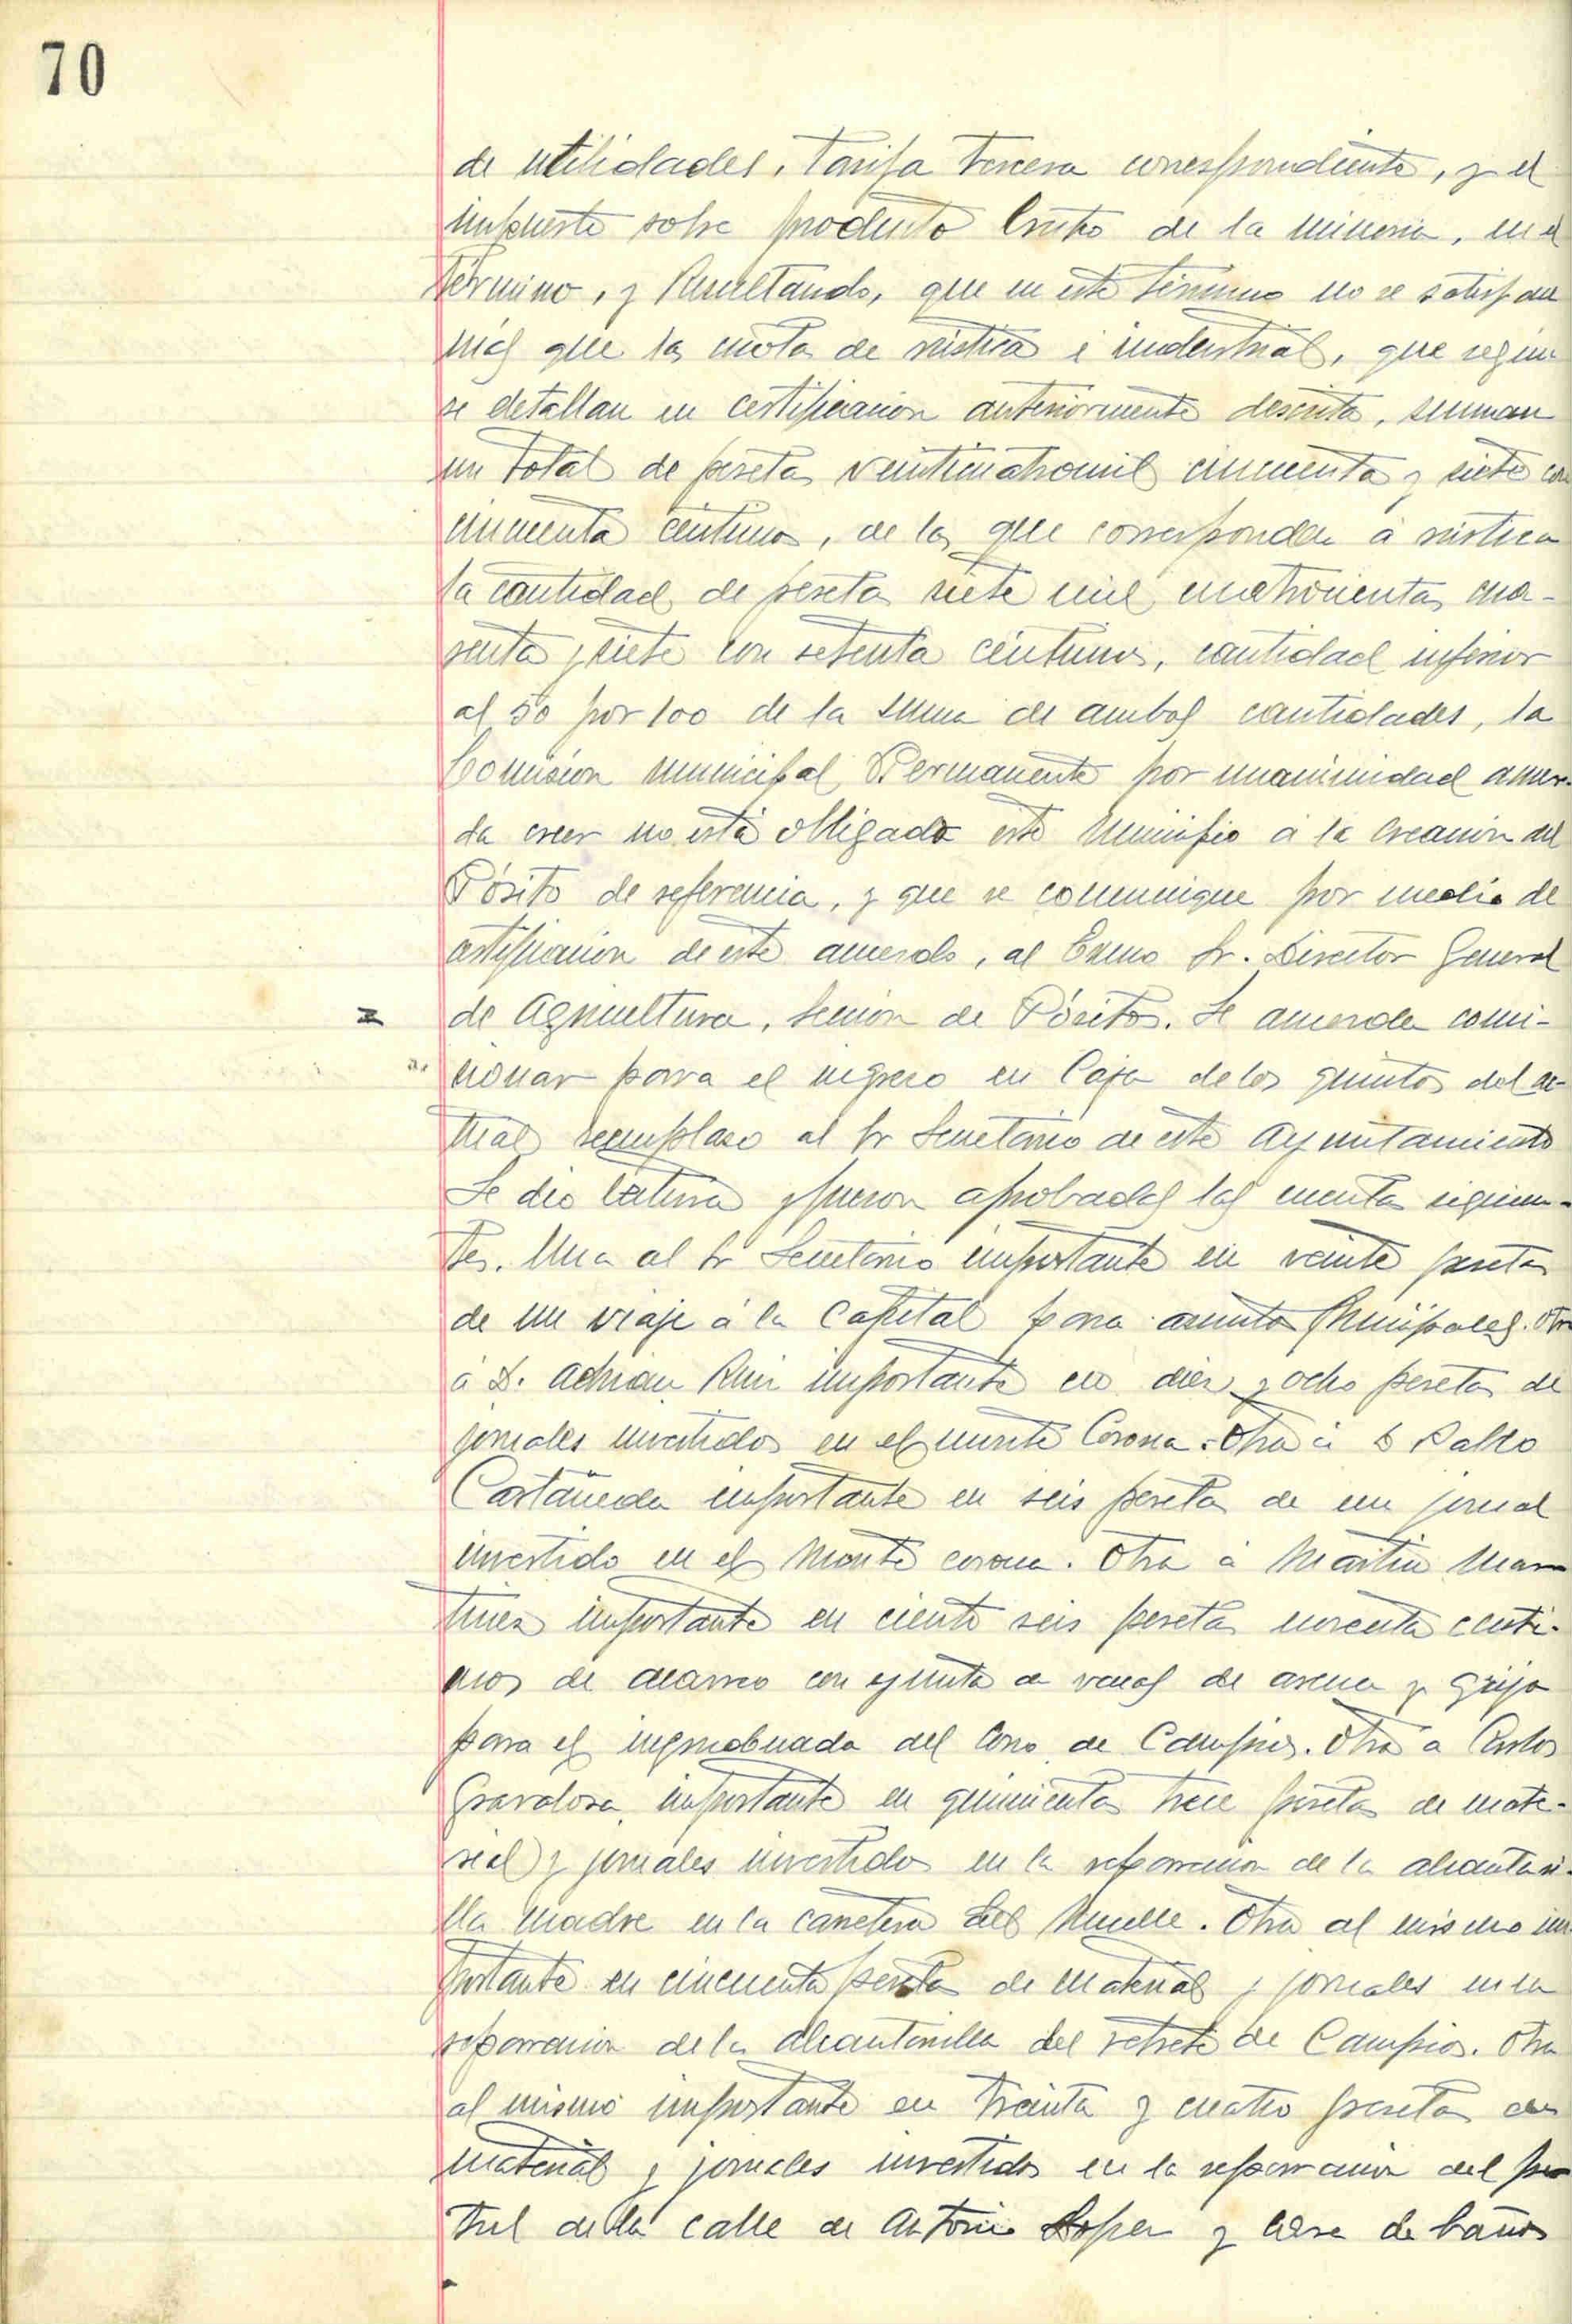 70
de utilidades, tarifa tercera correspondiente, y el
impuesto sobre producto bruto de la mineria, en el
término, y Resultando, que en este término no se satisfacen
más que las cuotas de rústica é industrial, que según
se detallan en certificación anteriormente descrita, suman
un total de pesetas veinticuatromil cincuenta y siete con
cincuenta céntimos, de las que corresponden á rústica
la cantidad de pesetas siete mil cuatrocientas cua-
renta y siete con setenta céntimos, cantidad inferior
al 50 por 100 de la suma de ambas cantidades, la
Comisión municipal Permanente por unanimidad acuer-
da creer no está obligado este Municipio á la creación del
Pósito de referencia, y que se comunique por medio de
certificación de este acuerdo, al Exmo Sr. Director General
de Agricultura, Sección de Pósitos. Se acuerda comi-
cionar para el ingreso en Caja de los quintos del ac-
tual reemplaso al Sr Secretario de este Ayuntamiento
Se dio lectura y fueron aprobadas las cuentas siguien-
tes. Una al Sr Secretario importante en veinte pesetas
de un viaje á la Capital para asuntos Municipales. Otra
á D. Adrian Ruiz importante en diez y ocho pesetas de
jornales invertidos en el monte Corona. Otra á D Pablo
Castañeda importante en seis pesetas de un jornal
invertido en el Monte corona. Otra á Martin Mar
tinez importante en ciento seis pesetas noventa centi-
mos de acarreo con yunta de vacas de arena y grijo
para el de Campios. Otra a Carlos
Gravalosa importante en quinientas trece pesetas de mate-
rial y jornales invertidos en la reparación de la alcantari-
lla madre en la carretera del Muelle. Otra al mismo im
portante en cincuenta pesetas de material y jornales en la
reparacion de la alcantarilla del retrete de Campios. Otra
al mismo importante en treinta y cuatro pesetas de
material y jornales invertidos en la reparacion del
de la calle de Antonio Lopez y casa de baños